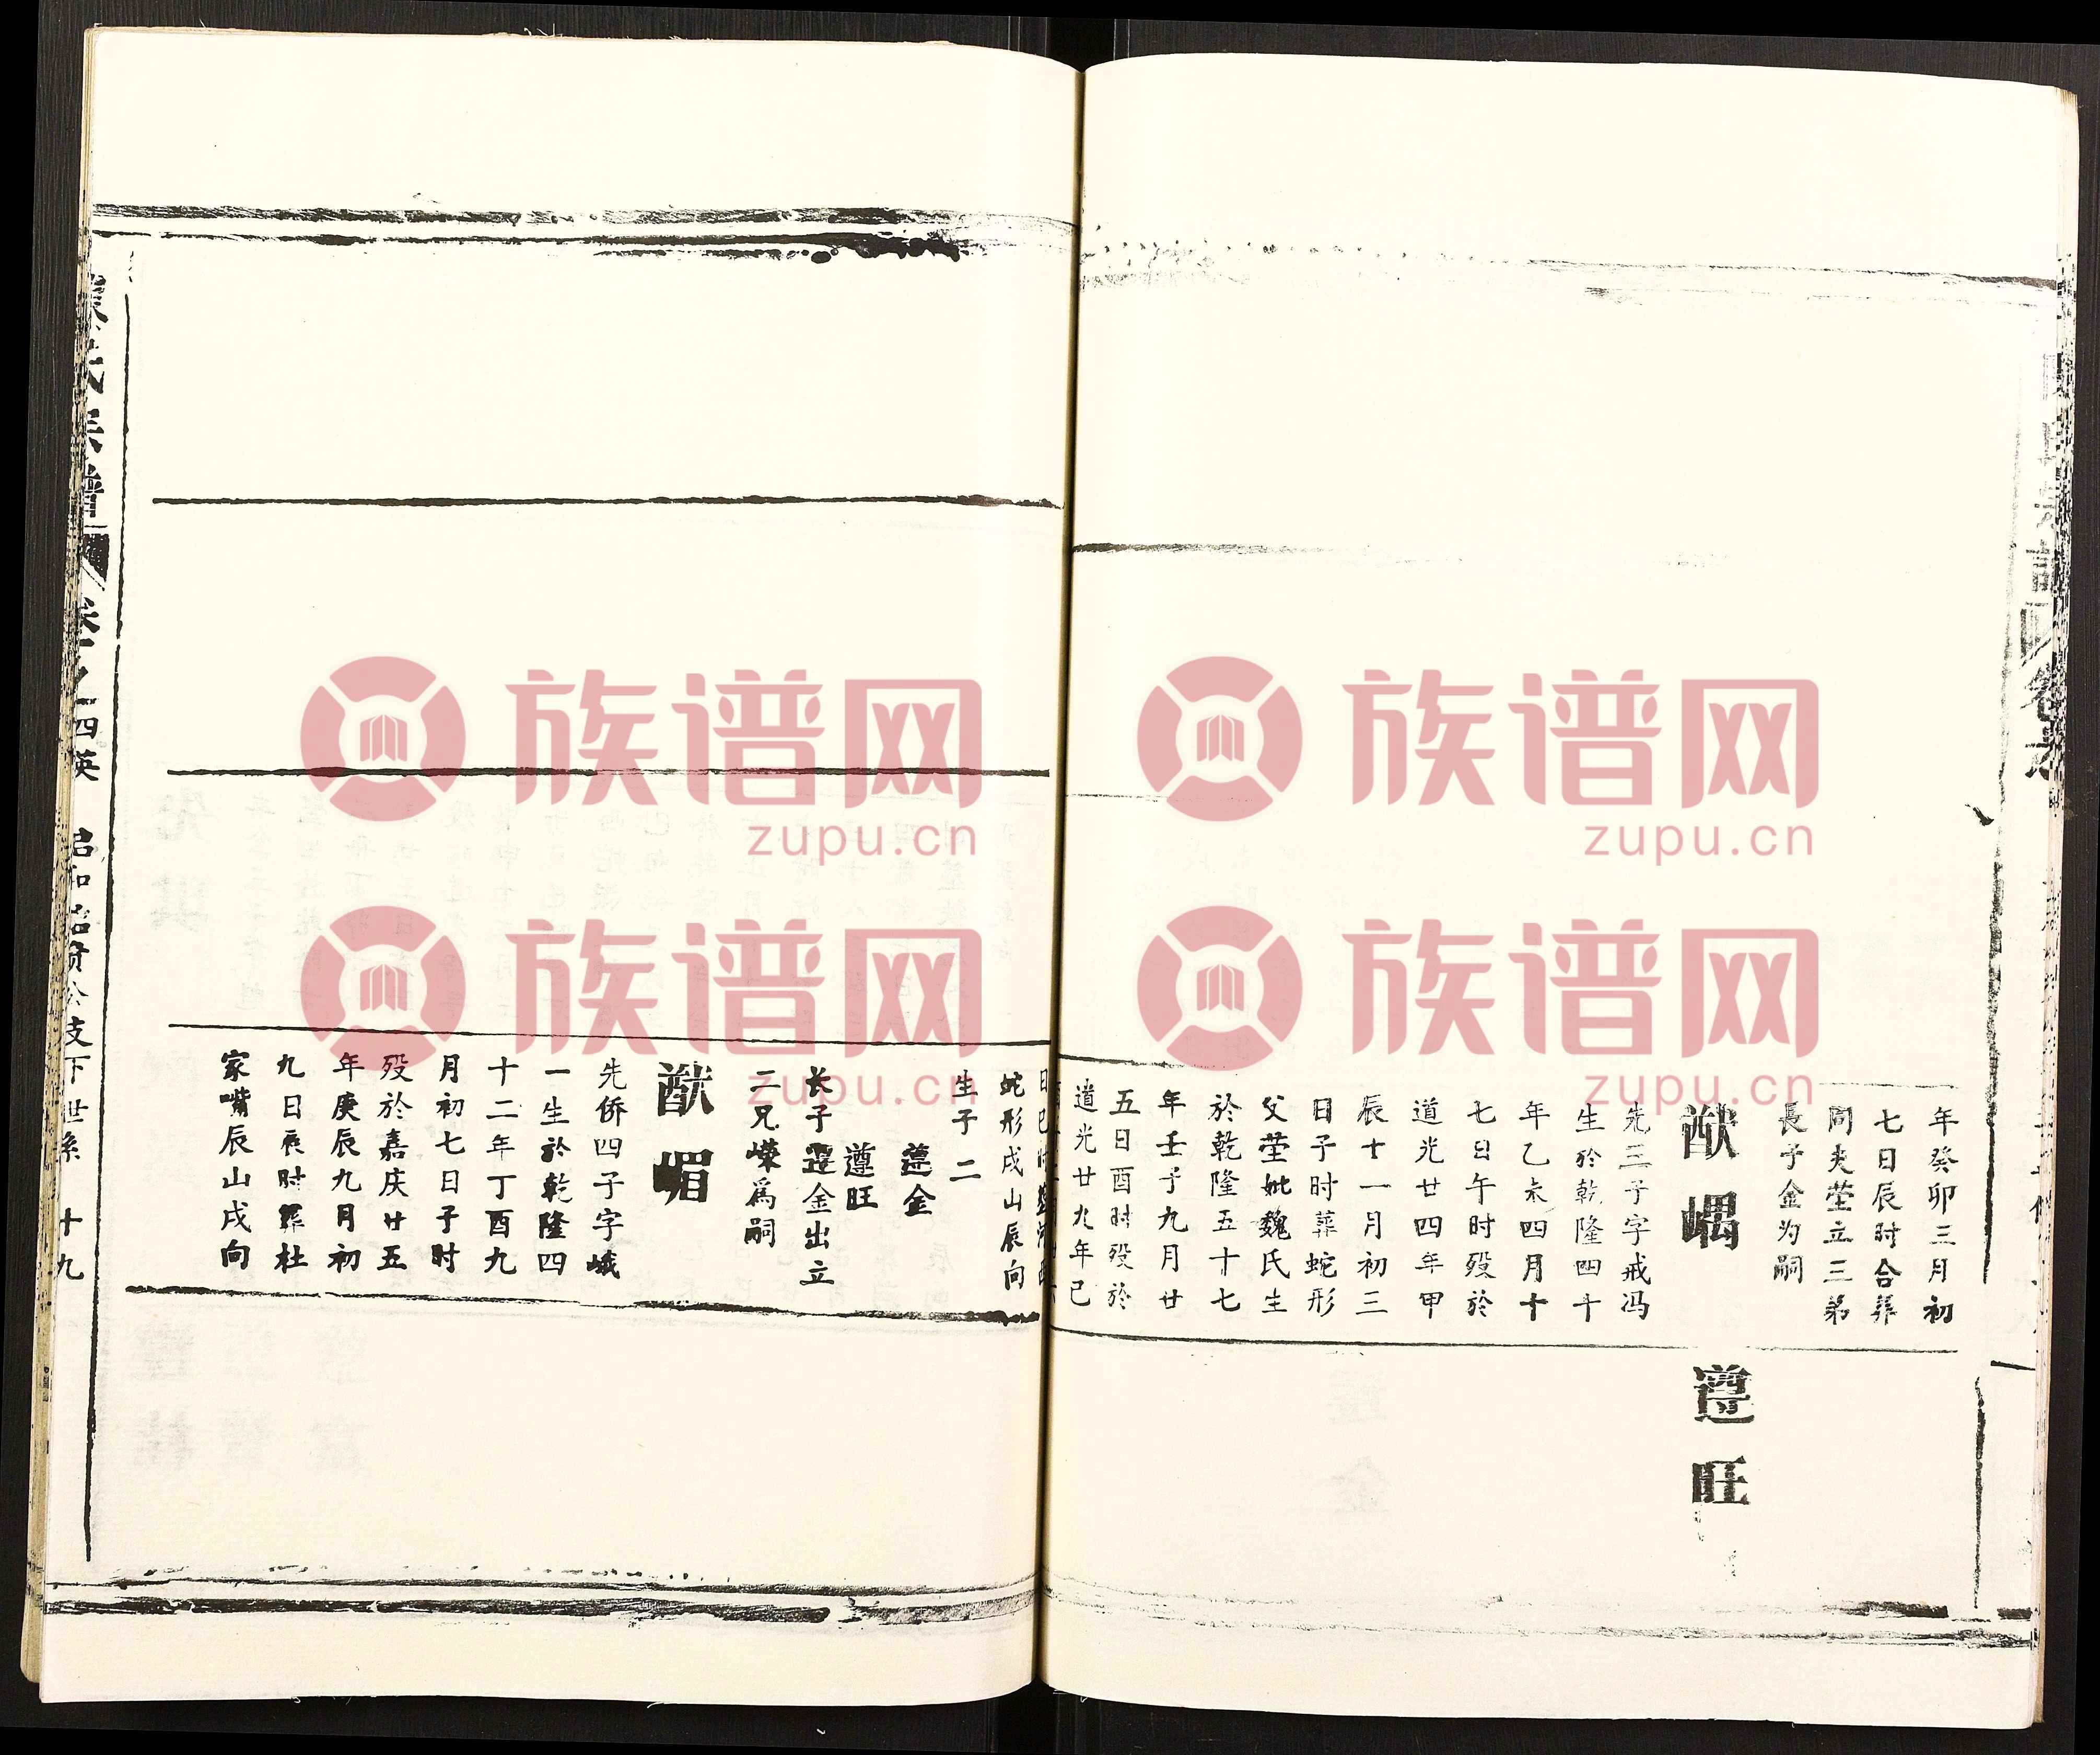 年癸卯三月初
七日辰时合葬
同夫茔立三弟
長子金为嗣
猷嵎
先三子字戒冯
生於乾隆四十
年乙未四月十
七日午时殁於
道光廿四年甲
辰十一月初三
日子时葬蛇形
父茔妣魏氏生
於乾隆五十七
年壬子九月廿
五日酉时殁於
道光廿九年已
遵旺
蛇形戌山辰向
生子二
遵金
遵旺
长子遵金出立
二兄嶸爲嗣
猷嵋
先侨四子字峨
一生於乾隆四
十二年丁酉九
月初七日子时
殁於嘉庆廿五
年庚辰九月初
九日辰时葬杜
家嘴辰山戌向
氏宗譜 卷之一四英 公支下世系 十九
族谱网
zupu.cn
族谱网
zupu.cn
族谱网
zupu.cn
族谱网
zupu.cn